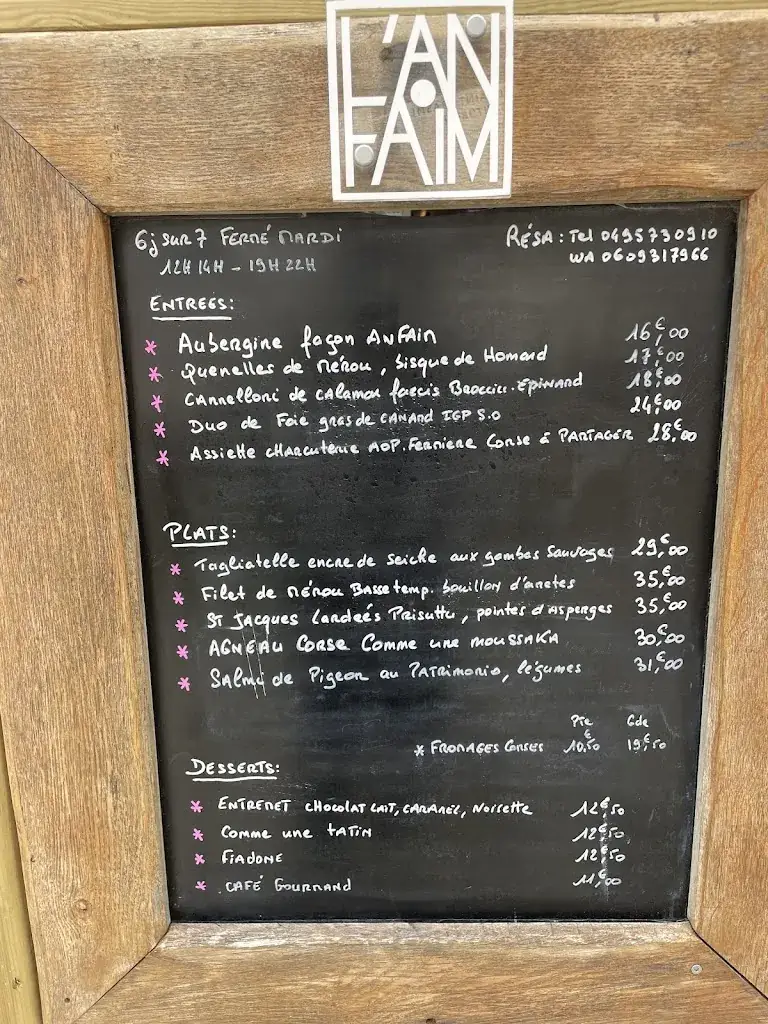 L'AN
FAIM
6j sur 7 FERMÉ MARDI
12H 14H - 19H 22H
RÉSA : Tel 0495730910
WA 0609317966
ENTREES:
* Aubergine façon ANFAIN 16€,00
* Quenelles de Mérou, bisque de Homard 17€,00
* CANNelloni de CALAMAR farcis BROCCIU. EPINARD 18€,00
* Duo de Foie gras de CANARD IGP S.O 24€00
* Assiette CHARCUTERIE AOP. FERMIERE CORSE à PARTAGER 28€,00
PLATS:
* Tagliatelle encre de seiche aux gambas Sauvages 29€,00
* Filet de Mérou Basse temp. bouillon d'aretes 35€,00
* ST Jacques Lardeés Prisuttu, pointes d'Asperges 35€,00
* AGNEAU CORSE Comme une MOUSSAKA 30€,00
* SALMI de Pigeon au PATRIMONIO, légumes 31€,00
Pte Gde
* FROMAGES CORSES 10€,50 19€,50
DESSERTS:
* ENTREMET CHOCOLAT LAIT, CARAMEL, Noisette 12€,50
* Comme une TATIN 12€,50
* FIADONE 12€,50
* CAFÉ GOURMAND 11€,00